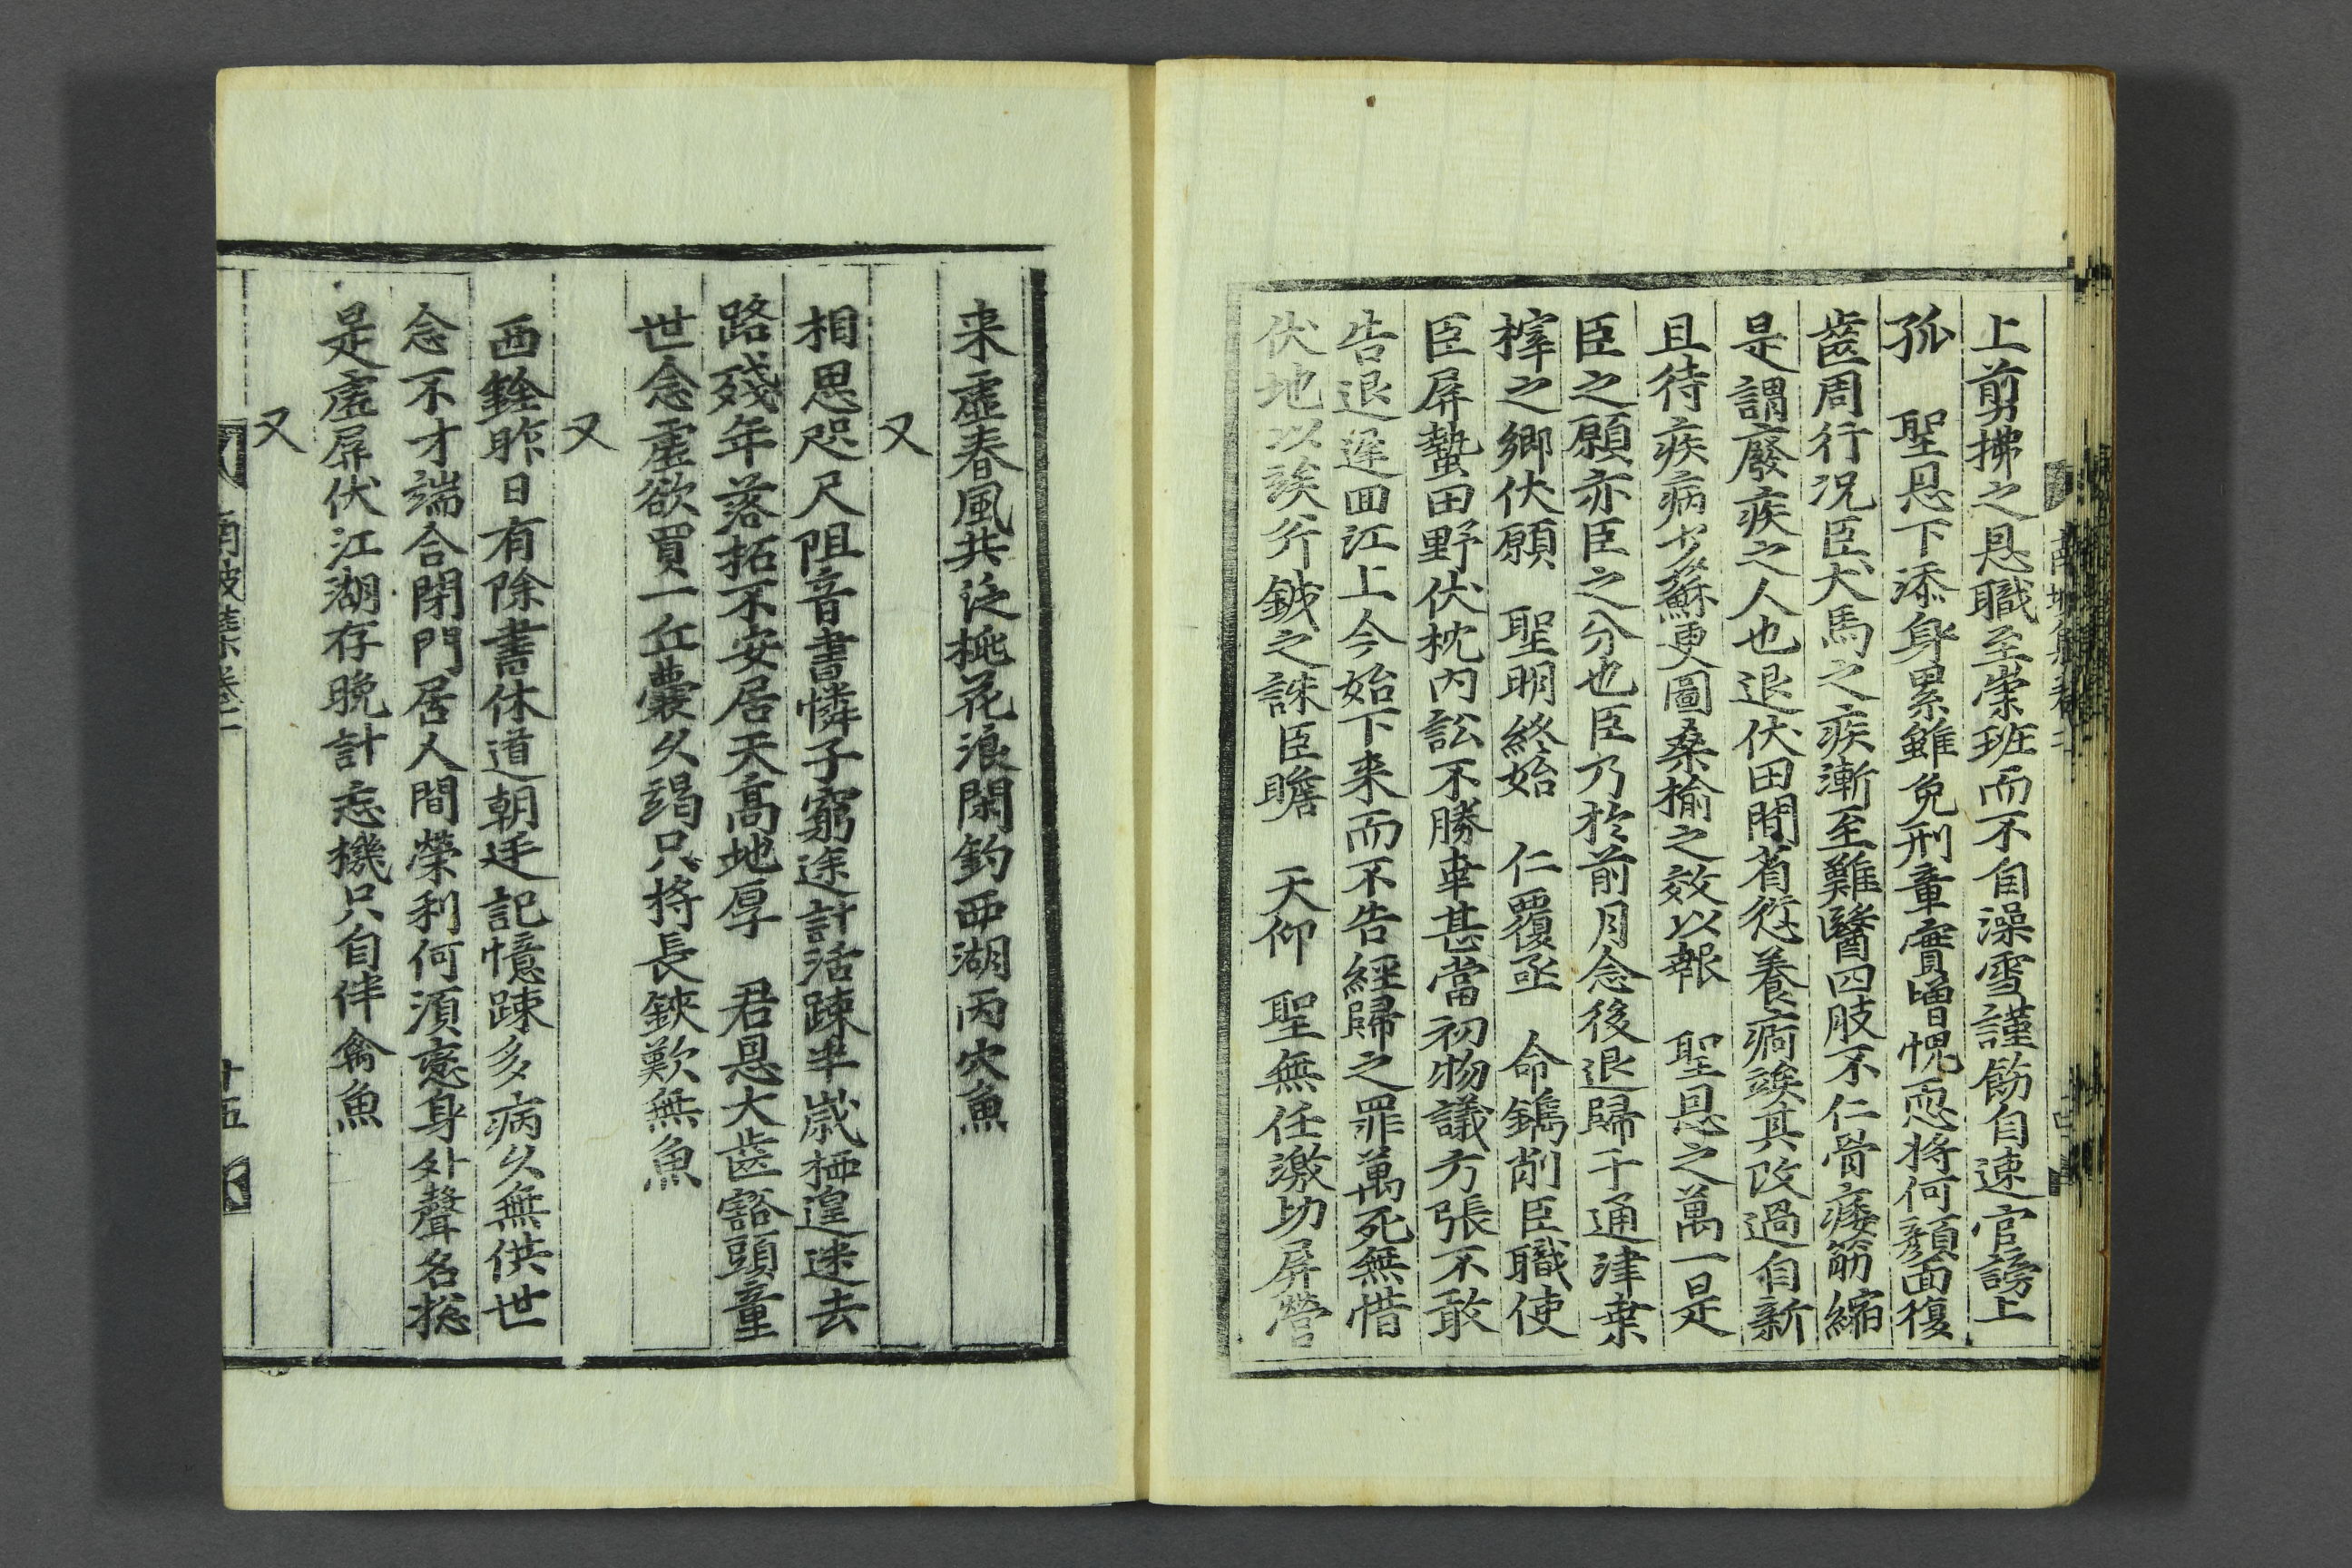 上剪拂之恩職至崇班而不自澡雪謹飭自速官謗上
孤 聖恩下添身累雖免刑章實增愧恧將何顔面復
齒周行况臣犬馬之疾漸至難醫四肢不仁骨痿筋縮
是謂廢疾之人也退伏田間省愆養痾竢其改過自新
且待疾病少蘇更圖桑榆之效以報 聖恩之萬一是
臣之願亦臣之分也臣乃於前月念後退歸于通津桒
梓之鄉伏願 聖明終始 仁覆亟 命鐫削臣職使
臣屏蟄田野伏枕內訟不勝幸甚當初物議方張不敢
告退遲回江上今始下来而不告經歸之罪萬死無惜
伏地以竢斧鉞之誅臣瞻 天仰 聖無任激切屏營
来虛春風共泛桃花浪閑釣西湖丙穴魚
又
相思咫尺阻音書憐子窮途計活踈半歲栖遑迷去
路殘年落拓不安居天高地厚 君恩大齒豁頭童
世念虛欲買一丘囊久竭只將長鋏歎無魚
又
西銓昨日有除書休道朝廷記憶踈多病久無供世
念不才端合閉門居人間榮利何須慕身外聲名摠
是虛屏伏江湖存晚計忘機只自伴禽魚
又
南坡集卷二
十五